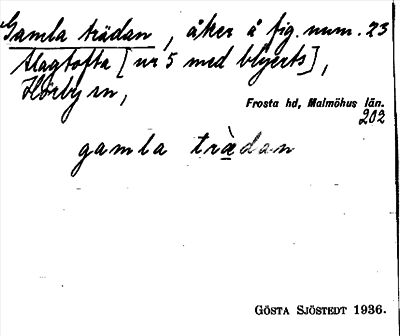 Gamla trädan, åker å fig. num. 23
Slagtofta [nr 5 med blyerts],
Hörby sn,
Frosta hd, Malmöhus län.
202
gamla trädan
GÖSTA SJÖSTEDT 1936.